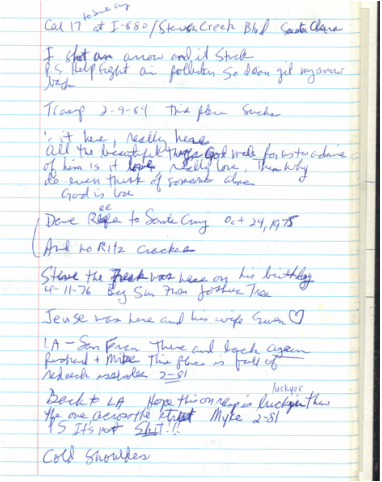 to Santa Cruz
Cal 17 at I-880/Stevens Creek Blvd Santa Clara
I shot an arrow and it stuck
P.S. Help fight air pollution so I can get my arrow
back
Tramp 2-9-84 This place Sucks
it here, really here
All the beautiful things God made for us to admire
of him is it love really love. Then why
do even think of someone else
God is love
Dave to Santa Cruz Oct 24, 1975
And no Ritz Cracker
Steve the Freak was here on his birthday
4-11-76 Big Sur from Joshua Tree
Jense was here and his wife Gwen ♡
LA - San Fran There and back again
Richard + Mike This place is full of
redneck 2-81
luckyer
Back to LA Hope this onramp is than
the one across the street Myke 2-81
PS It's not Shit!!!
Cold Shoulder